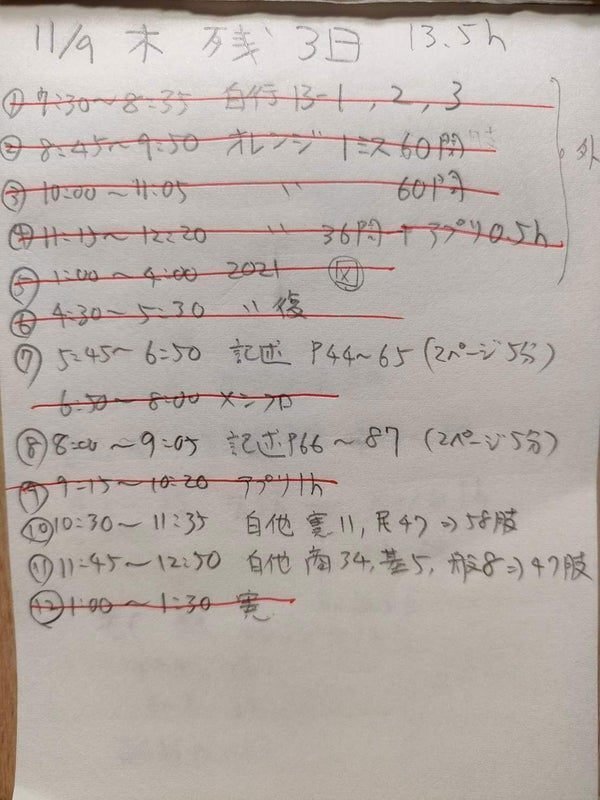 11/9 木 残 3日 13.5h
① 7:30〜8:35 自行 13-1, 2, 3
② 8:45〜9:50 オレンジ 1ミス 60問
③ 10:00〜11:05 〃 60問
④ 11:15〜12:20 〃 36問 + アプリ0.5h
外
⑤ 1:00〜4:00 2021 図
⑥ 4:30〜5:30 〃 復
⑦ 5:45〜6:50 記述 P44〜65 (2ページ5分)
6:50〜8:00 メシフロ
⑧ 8:00〜9:05 記述P66〜87 (2ページ5分)
⑨ 9:15〜10:20 アプリ1h
⑩ 10:30〜11:35 自他 憲11, 民47⇒58肢
⑪ 11:45〜12:50 自他 商34, 基5, 般8⇒47肢
⑫ 1:00〜1:30 憲